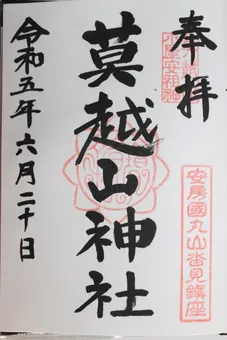 奉拝
安房國丸山沓見鎮座
莫越山神社
令和五年六月二十日